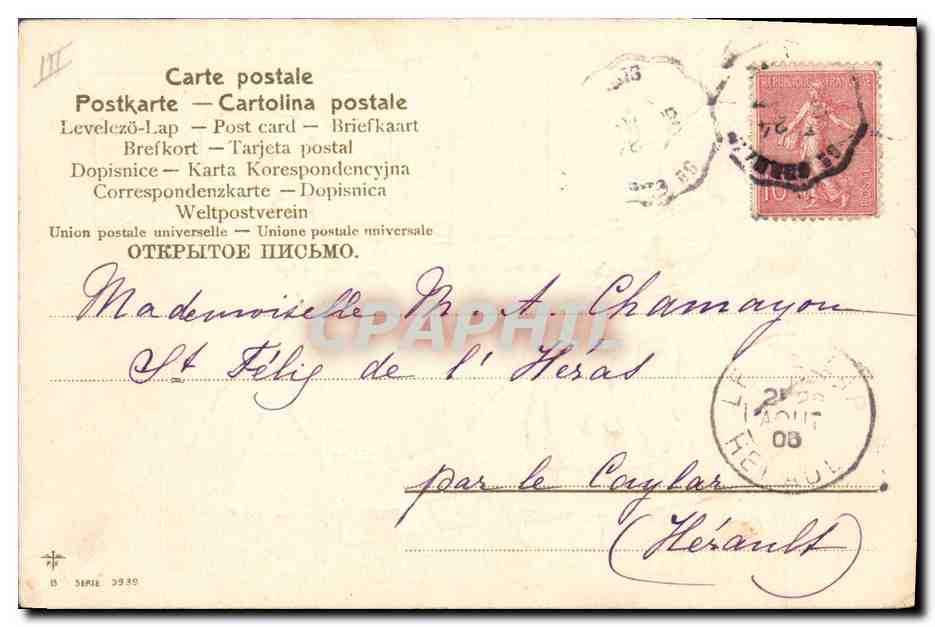 III
Carte postale
Postkarte — Cartolina postale
Levelező-Lap — Post card — Briefkaart
Brefkort — Tarjeta postal
Dopisnice — Karta Korespondencyjna
Correspondenzkarte — Dopisnica
Weltpostverein
Union postale universelle — Unione postale universale
ОТКРЫТОЕ ПИСЬМО.
REPUBLIQUE FRANÇAISE
10
24
Mademoiselle M. A. Chamayou
CPAPHIL
St Félix de l'Héras
AOUT
HERAULT
par le Caylar
(Hérault)
B SERIE 3939